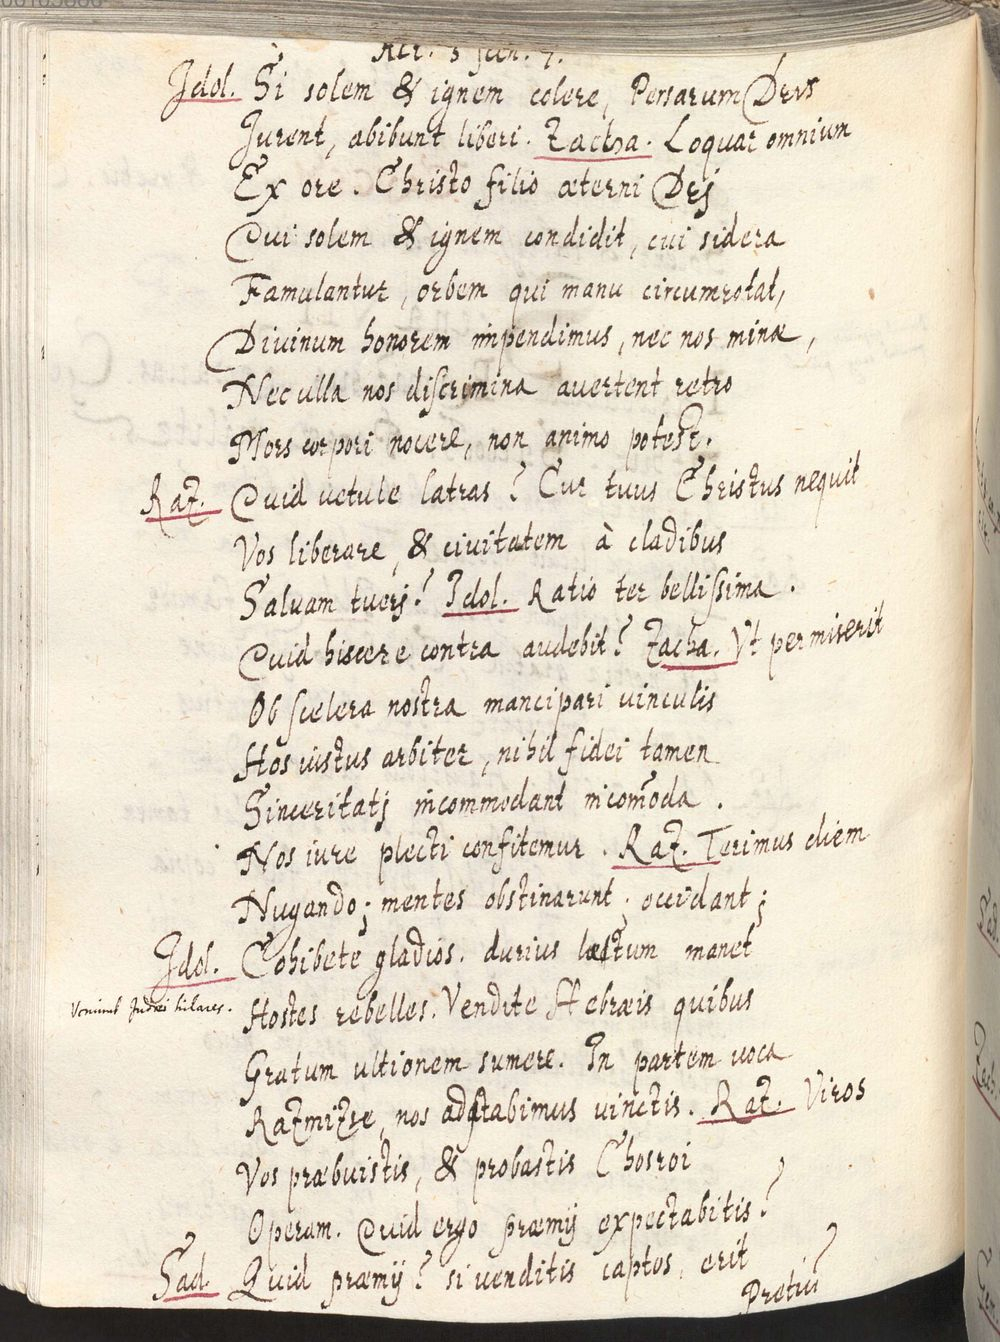 Act. 3 scen. 7.
Idol. Si solem & ignem colere, Persarum Deos
Jurent, abibunt liberi. Zacha. Loquar omnium
Ex ore. Christo filio æterni Dej
Qui solem & ignem condidit, cui sidera
Famulantur, orbem qui manu circumrotat,
Divinum honorem inpendimus, nec nos minæ,
Nec ulla nos discrimina avertent retro
Mors corpori nocere, non animo potest.
Raz. Quid vetule latras? Cur tuus Christus nequit
Vos liberare, & civitatem à cladibus
Salvam tuerj? Idol. Ratio ter bellissima.
Quid hiscere contra audebit? Zacha. Vt permiserit
Ob scelera nostra mancipari vinculis
Hos iustus arbiter, nihil fidei tamen
Sinceritatj incommodant incom̃oda.
Nos iure plecti confitemur. Raz. Terimus diem
Nugando; mentes obstinarunt; occidant;
Idol. Cohibete gladios. durius læstum manet
Veniunt Judæi hilares. Hostes rebelles. Vendite Hebræis quibus
Gratum ultionem sumere. In partem voca
Razmitze, nos adstabimus vinctis. Raz. Viros
Vos præbuistis, & probastis Chosroi
Operam. Quid ergo præmij expectabitis?
Sad. Quid præmij? si venditis captos, erit
Pretiũ